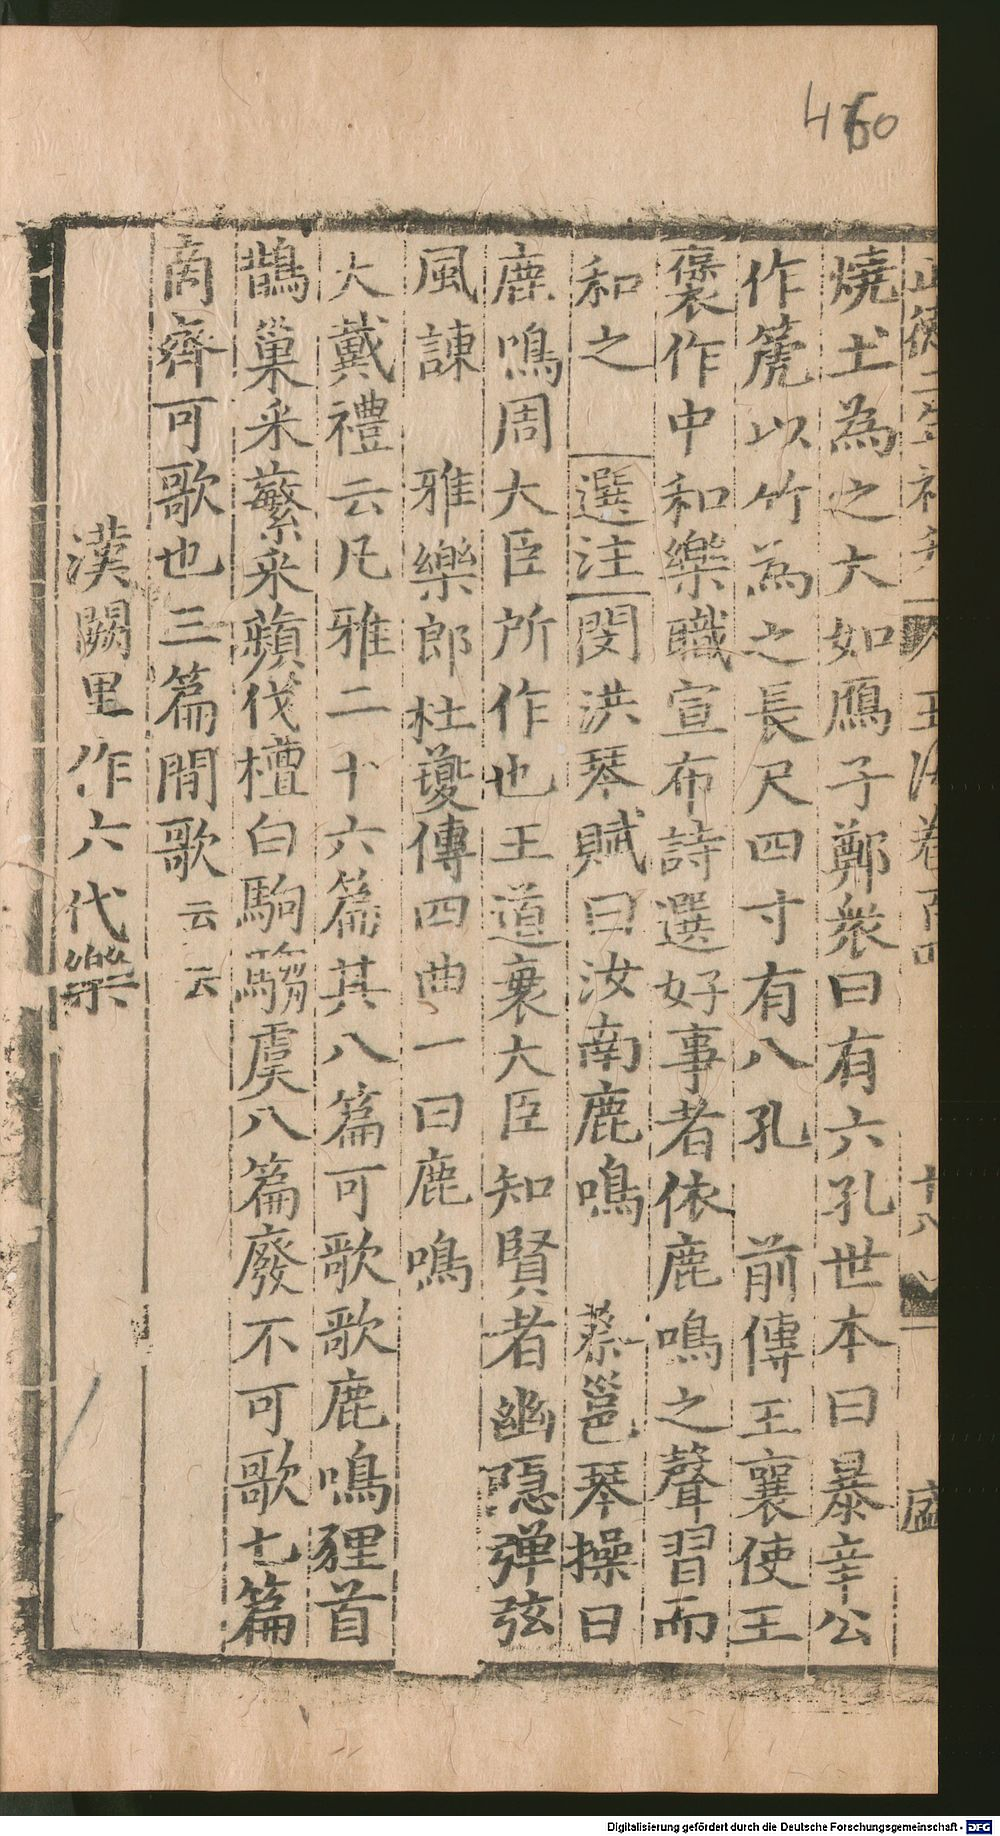 460
正德二年補刋 玉海卷百四 十八 盛
燒土為之大如鴈子鄭衆曰有六孔世本曰暴辛公
作箎以竹為之長尺四寸有八孔 前傳王襄使王
褒作中和樂職宣布詩選好事者依鹿鳴之聲習而
和之 選注閔洪琴賦曰汝南鹿鳴 蔡邕琴操曰
鹿鳴周大臣所作也王道衰大臣知賢者幽隠弹弦
風諫 雅樂郎杜夔傳四曲一曰鹿鳴
大戴禮云凡雅二十六篇其八篇可歌歌鹿鳴狸首
鵲巢采蘩采蘋伐檀白駒騶虞八篇廢不可歌七篇
商齊可歌也三篇間歌云云
漢闕里作六代樂
Digitalisierung gefördert durch die Deutsche Forschungsgemeinschaft - DFG